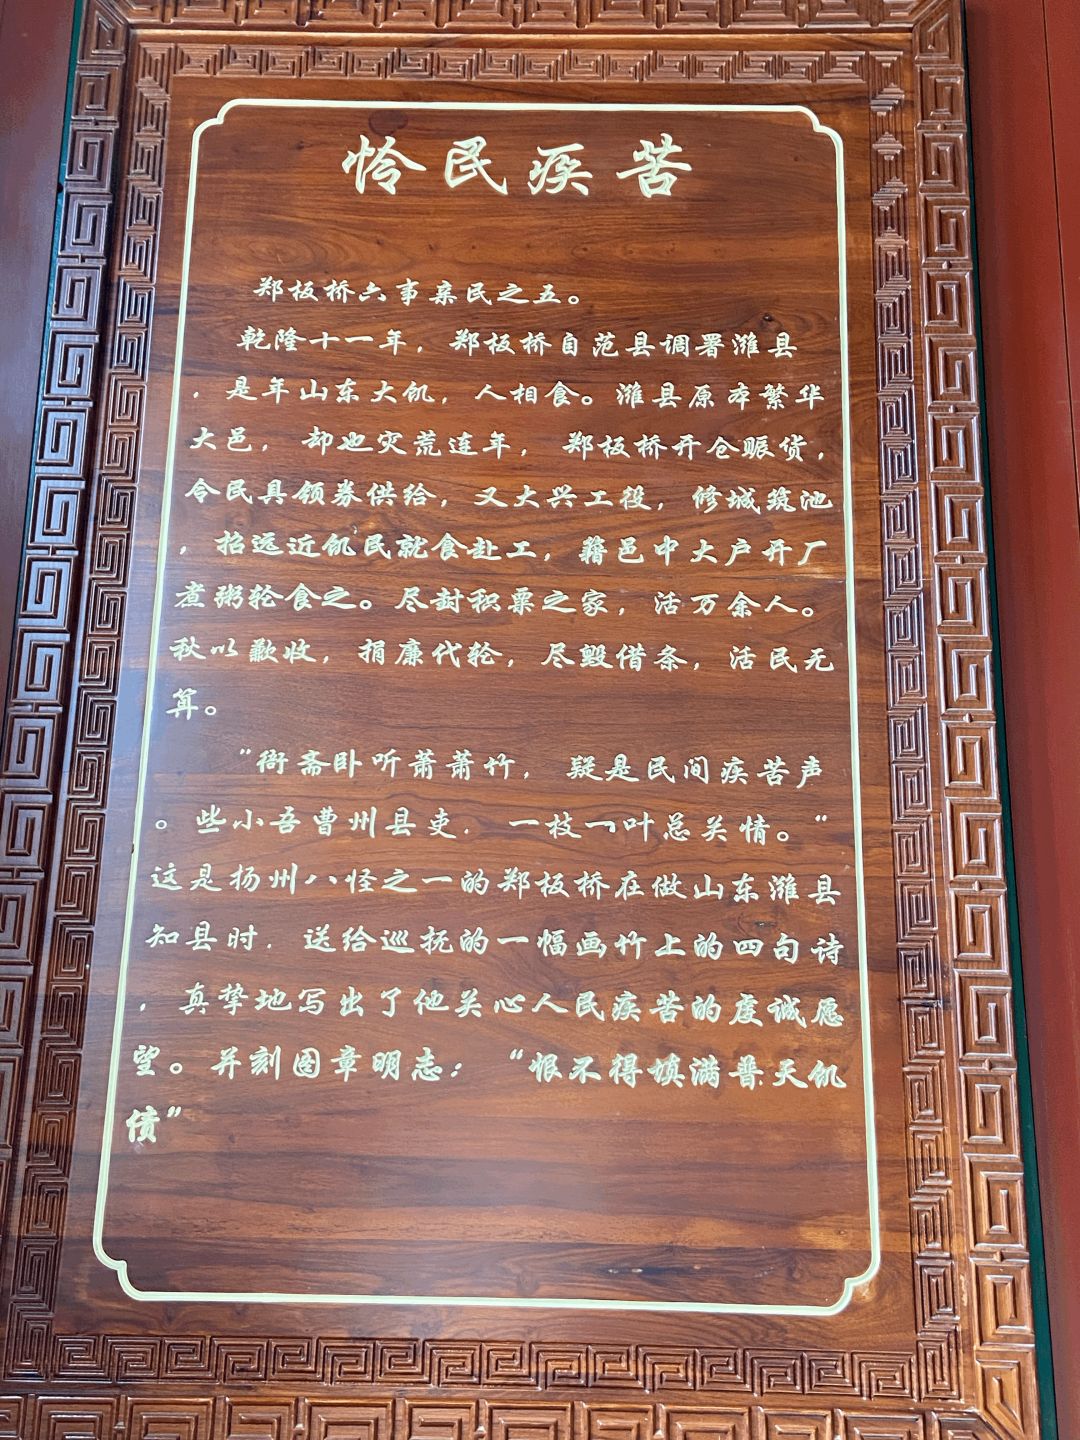 怜民疾苦
郑板桥六事亲民之五。
乾隆十一年，郑板桥自范县调署潍县
，是年山东大饥，人相食。潍县原本繁华
大邑，却也灾荒连年，郑板桥开仓赈货，
令民具领券供给，又大兴工役，修城筑池
，招远近饥民就食赴工，籍邑中大户开厂
煮粥轮食之。尽封积粟之家，活万余人。
秋以歉收，捐廉代轮，尽毁借条，活民无
算。
“衙斋卧听萧萧竹，疑是民间疾苦声
。些小吾曹州县吏．一枝一叶总关情。“
这是扬州八怪之一的郑板桥在做山东潍县
知县时．送给巡抚的一幅画竹上的四句诗
，真挚地写出了他关心人民疾苦的虔诚愿
望。并刻图章明志：“恨不得填满普天饥
债”